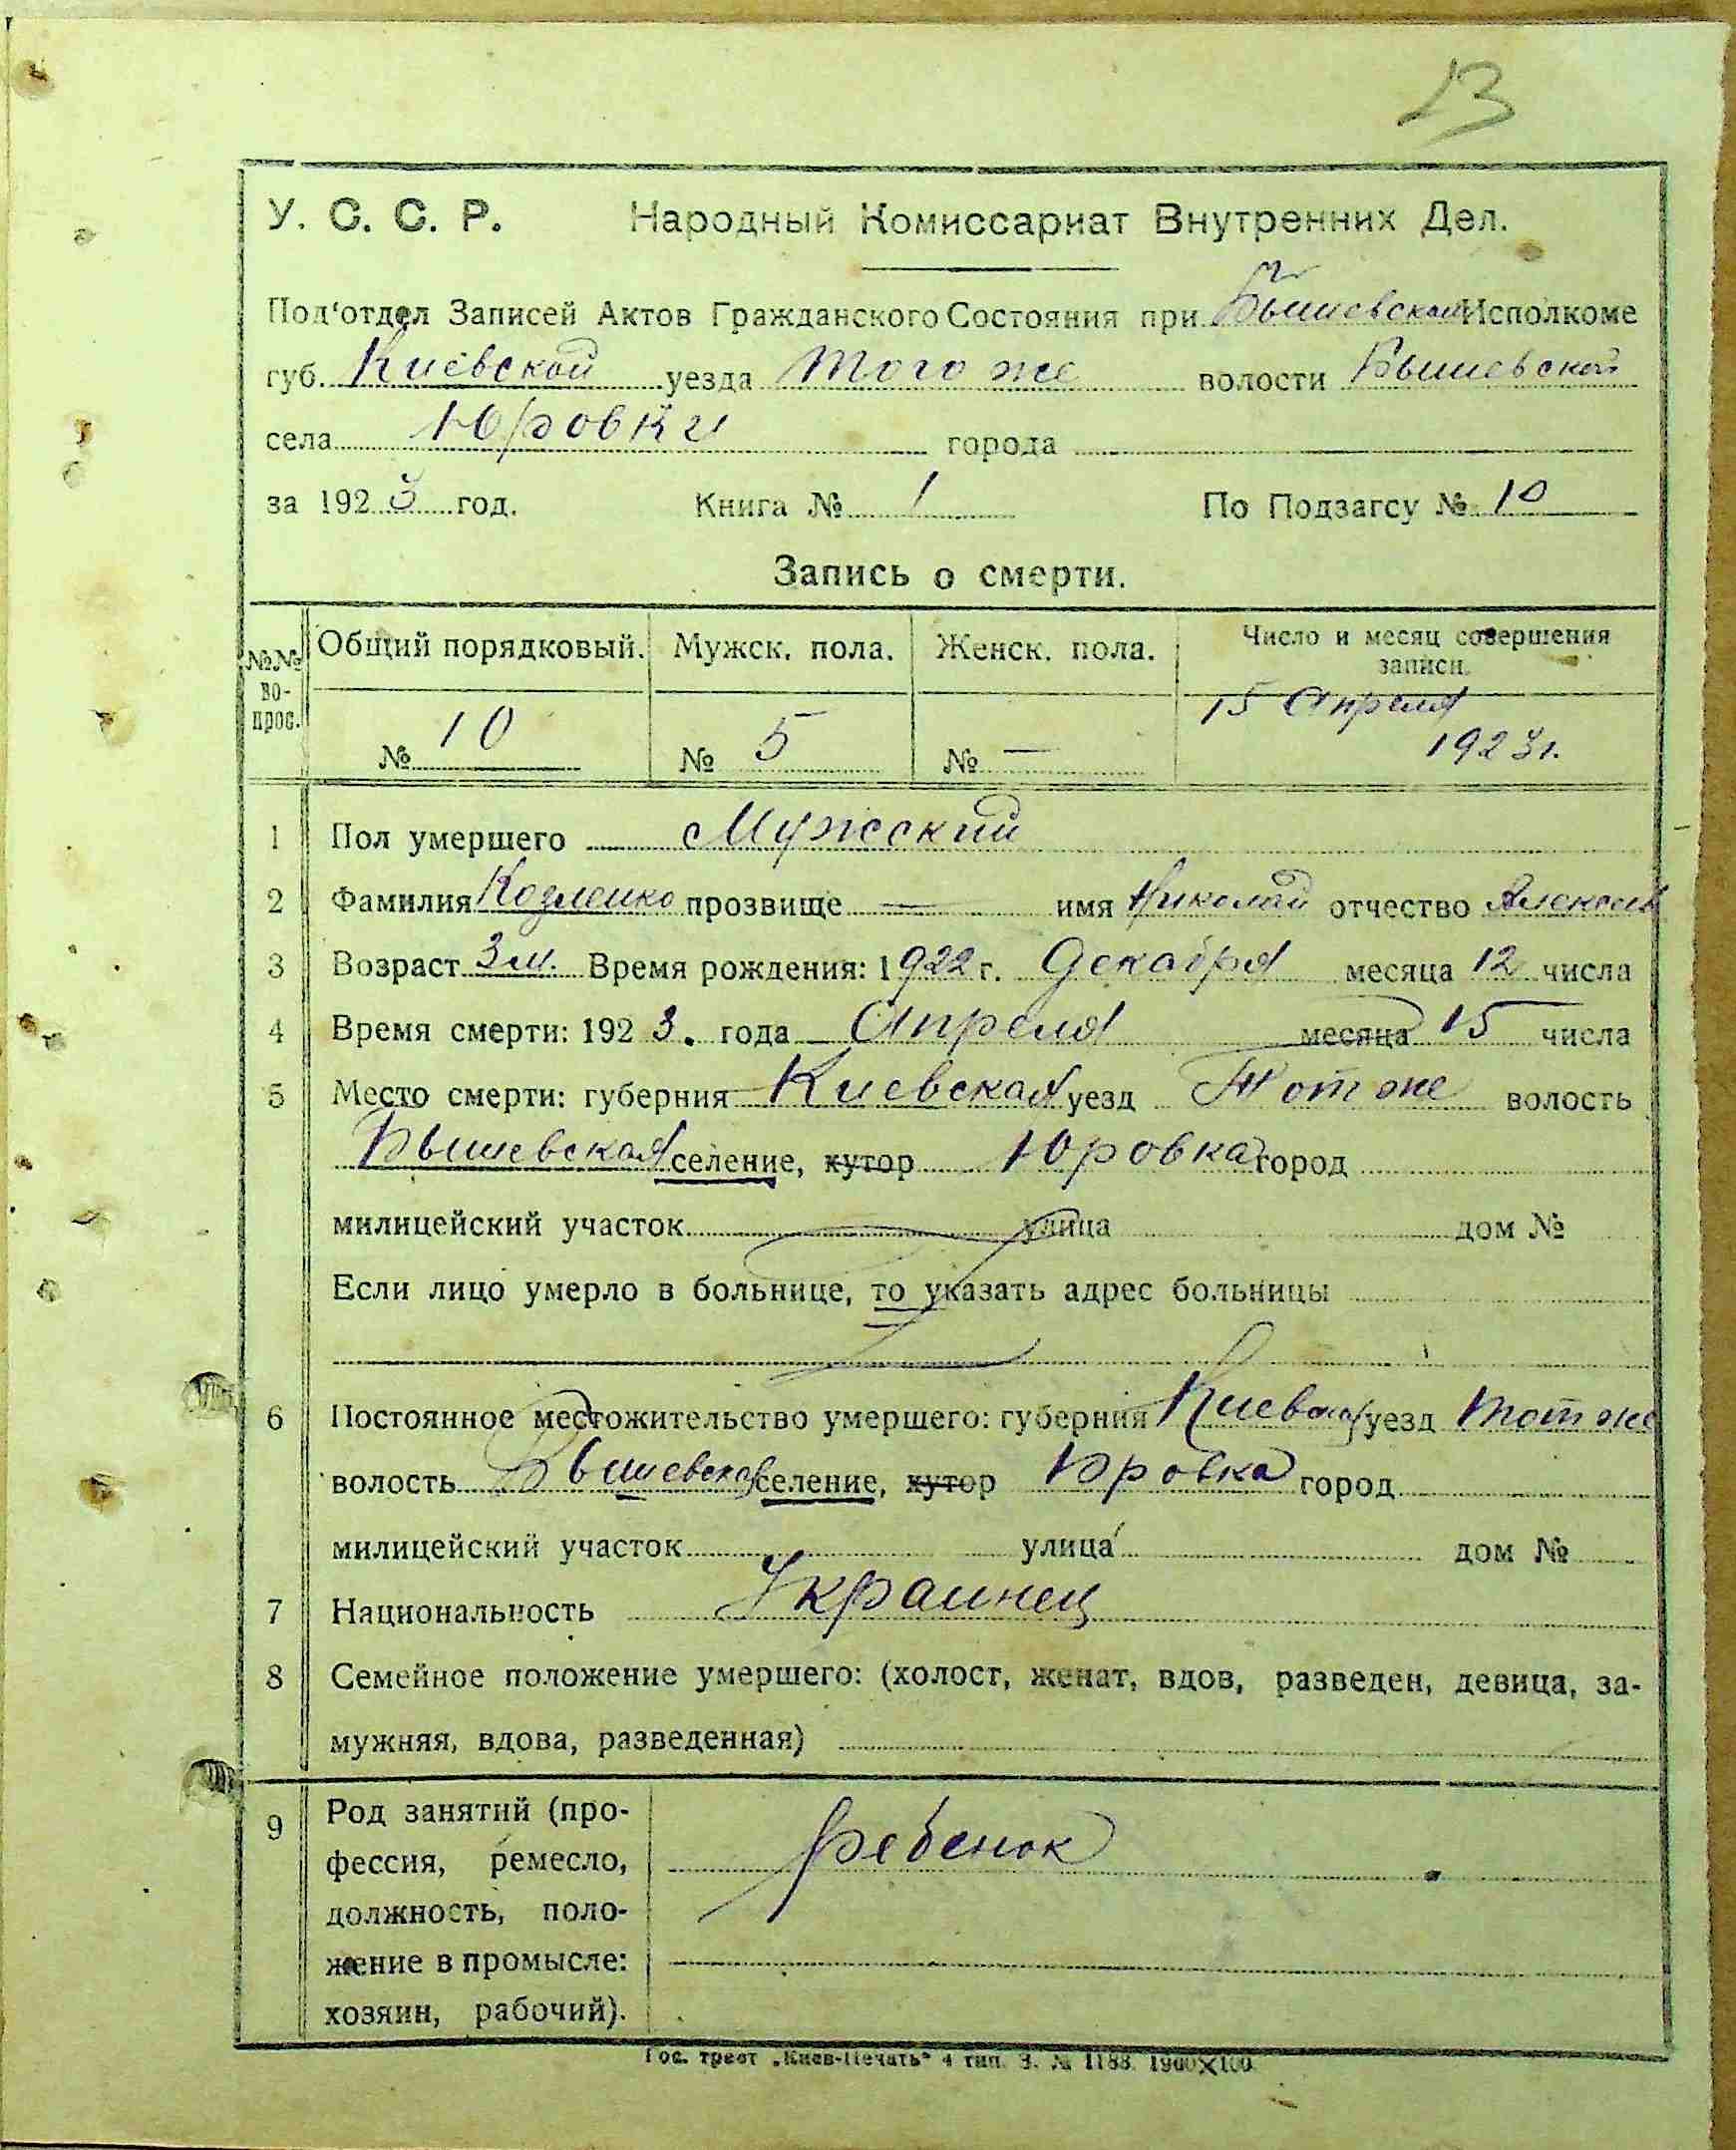 23
У. С. С. Р. Народный Комиссариат Внутренних Дел.
Под'отдел Записей Актов Гражданского Состояния при Бышевском Исполкоме
губ. Киевской уезда того же волости Бышевской
села Юровки города
за 1923 год. Книга № 1 По Подзагсу № 10
Запись о смерти.
№№ во-прос. Общий порядковый. Мужск. пола. Женск. пола. Число и месяц совершения записи.
№ 10 № 5 № — 15 Апреля 1923 г.
1 Пол умершего Мужский
2 Фамилия Козленко прозвище — имя Николай отчество Алексеев
3 Возраст 3 м. Время рождения: 1922 г. Декабря месяца 12 числа
4 Время смерти: 1923. года Апреля месяца 15 числа
5 Место смерти: губерния Киевская уезд Тот же волость
Бышевская селение, хутор Юровка город
милицейский участок улица дом №
Если лицо умерло в больнице, то указать адрес больницы
6 Постоянное местожительство умершего: губерния Киевская уезд тот же
волость Бышевская селение, хутор Юровка город
милицейский участок улица дом №
7 Национальность Украинец
8 Семейное положение умершего: (холост, женат, вдов, разведен, девица, за-
мужняя, вдова, разведенная)
9 Род занятий (про-
фессия, ремесло, ребенок
должность, поло-
жение в промысле:
хозяин, рабочий).
Гос. трест „Киев-Печать" 4 тип. З. № 1188. 1900×100